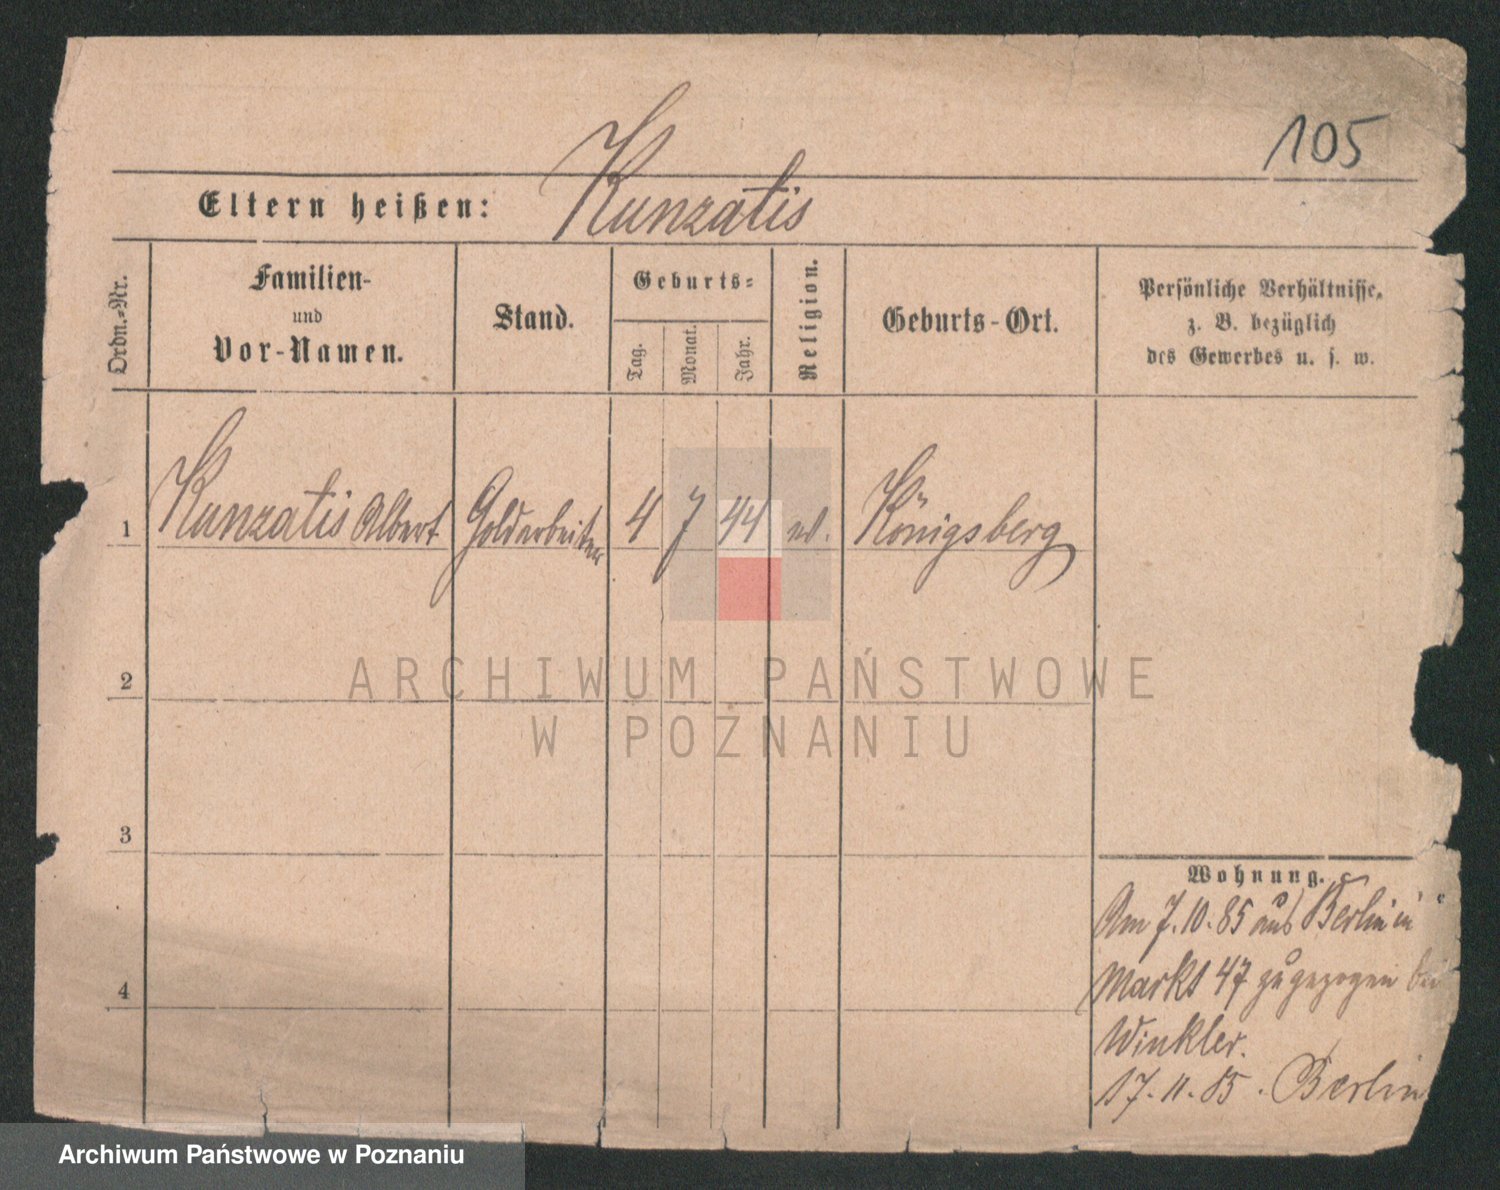 105
Eltern heißen: Kunzatis
Ordn.-Nr.
Familien-
und
Vor-Namen.
Stand.
Geburts-
Tag.
Monat.
Jahr.
Religion.
Geburts-Ort.
Persönliche Verhältnisse,
z. B. bezüglich
des Gewerbes u. s. w.
1 Kunzatis Albert Goldarbeiter 4 7 44 Königsberg
2
3
4
Wohnung.
Am 7.10.85 aus Berlin in
Markt 47 zugezogen bei
Winkler.
17.11.85. Berlin
ARCHIWUM PAŃSTWOWE
W POZNANIU
Archiwum Państwowe w Poznaniu